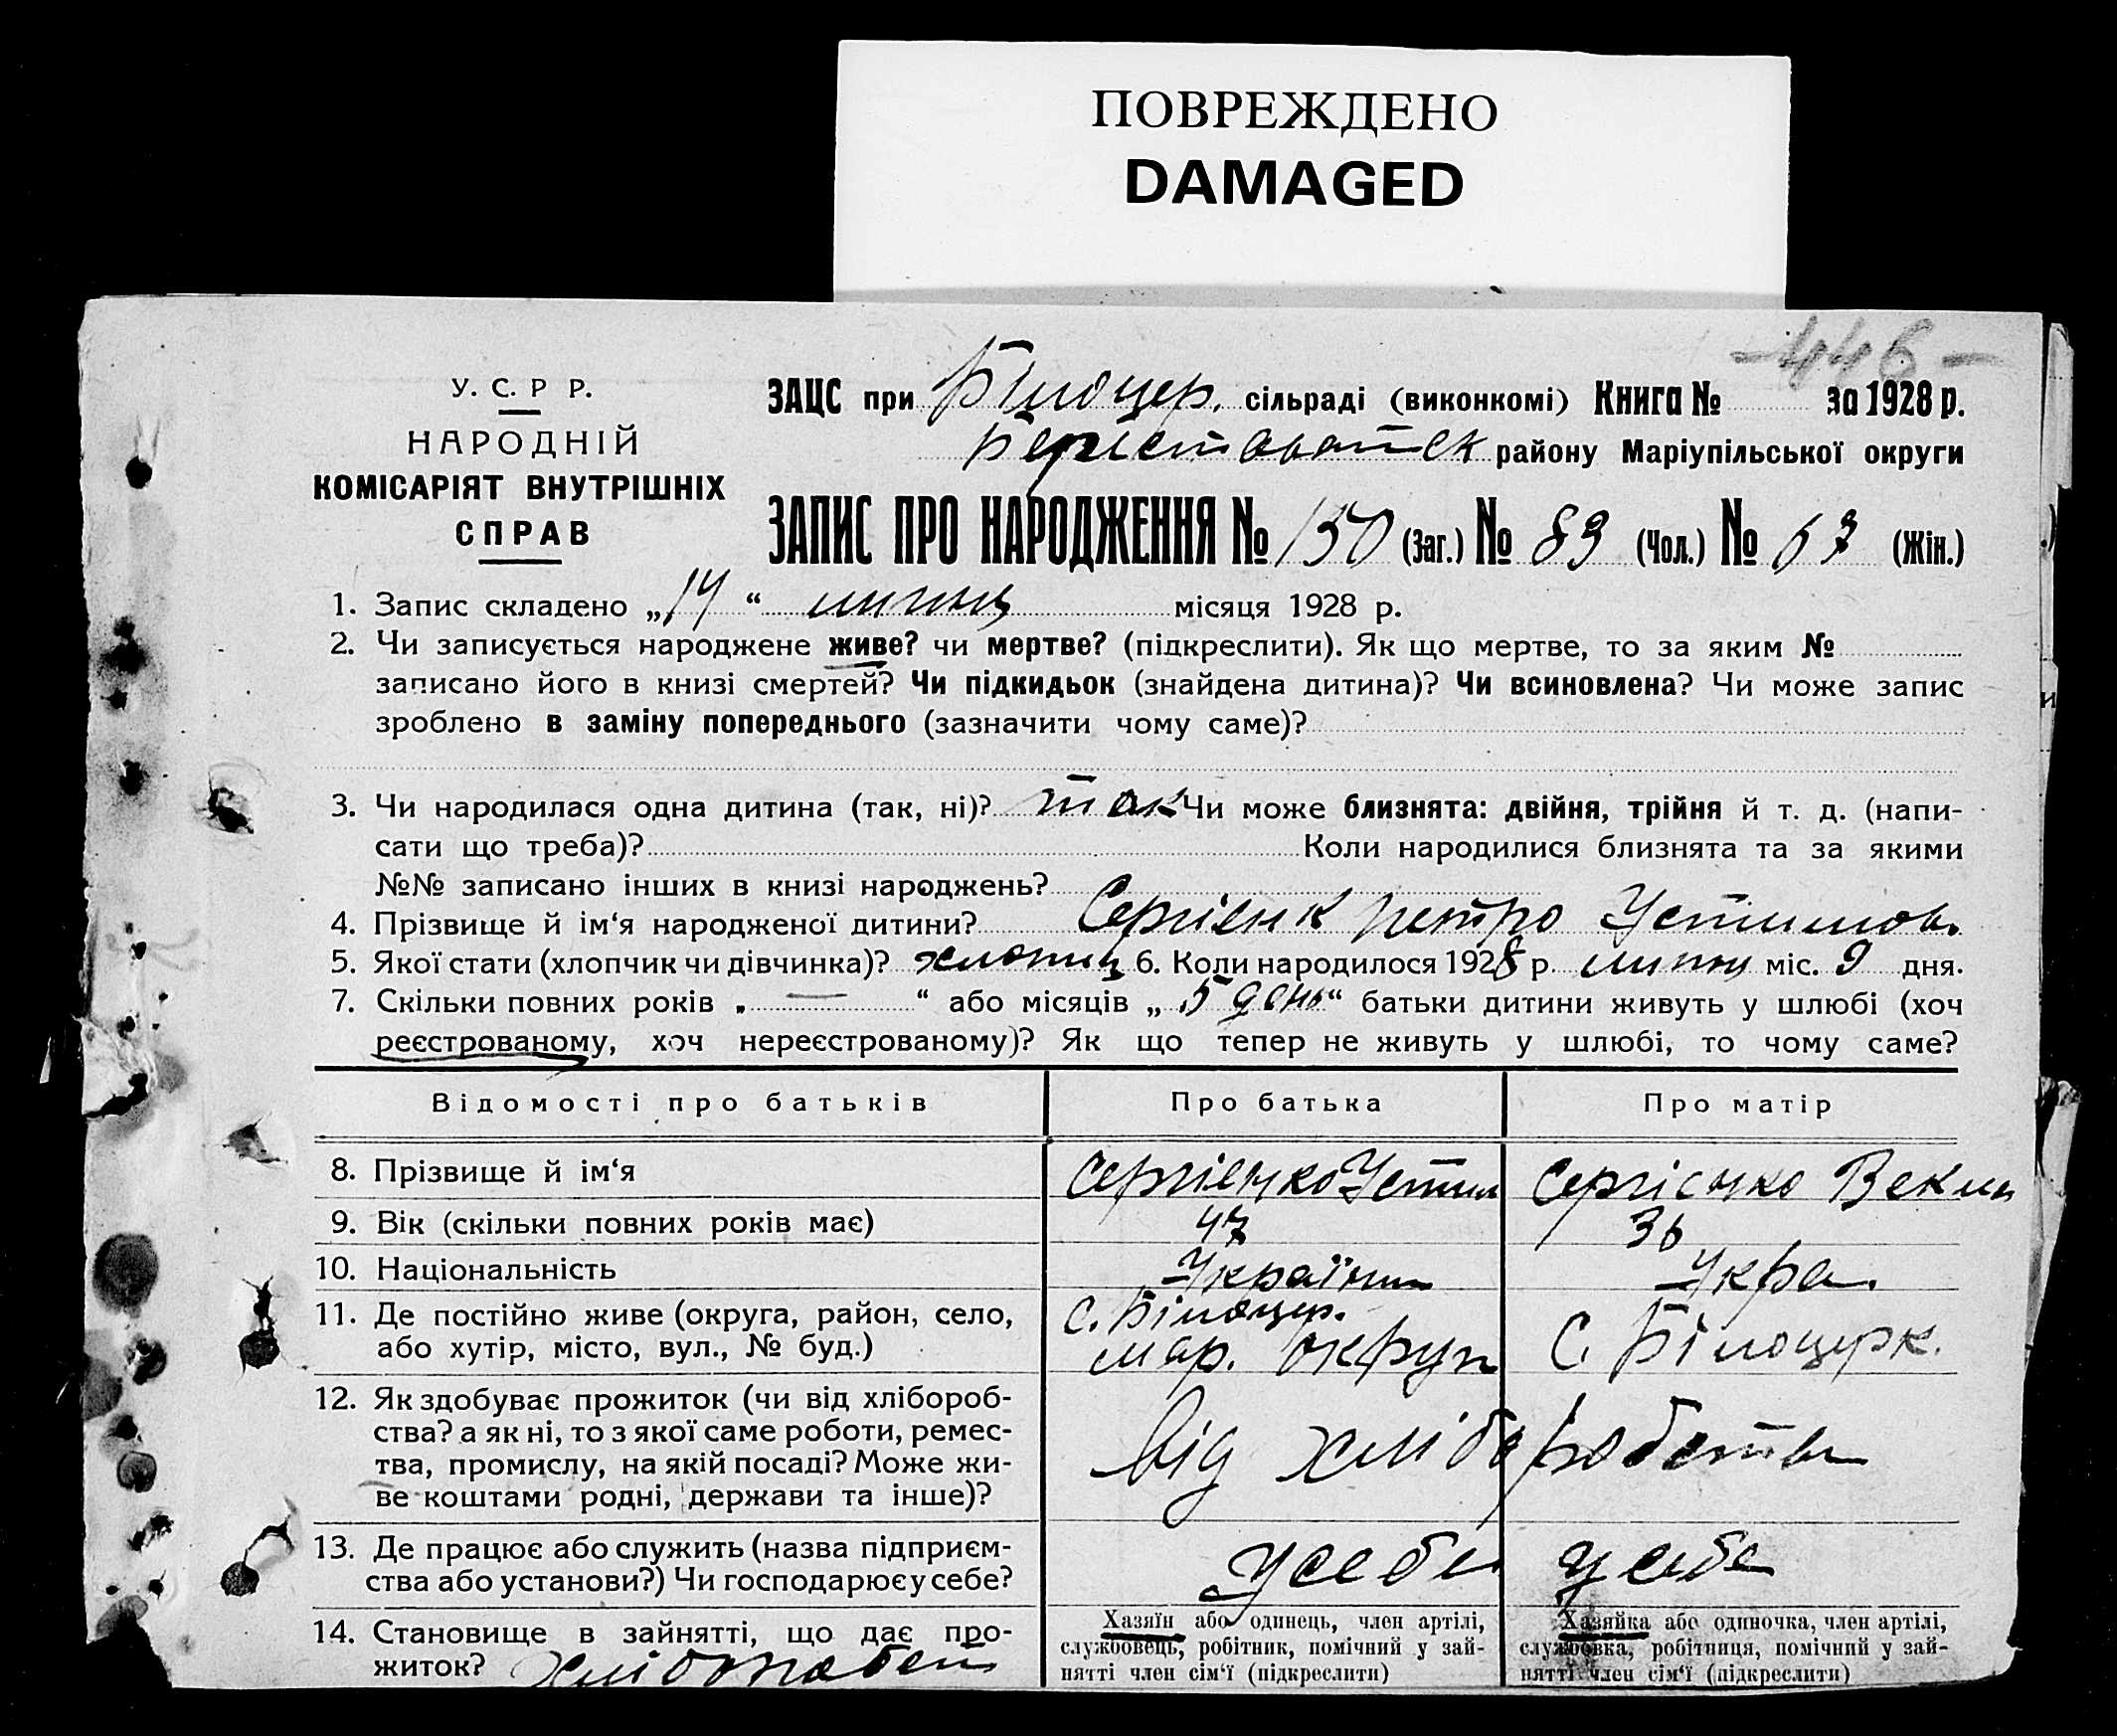 ПОВРЕЖДЕНО
DAMAGED
-446-
У. С. Р Р.
НАРОДНІЙ
КОМІСАРІЯТ ВНУТРІШНІХ
СПРАВ
ЗАЦС при Білоцер. сільраді (виконкомі) Книга № за 1928 р.
району Маріупільської округи
ЗАПИС ПРО НАРОДЖЕННЯ № 150 (Заг.) № 83 (Чол.) № 67 (Жін.)
1. Запис складено „14“ липня місяця 1928 р.
2. Чи записується народжене живе? чи мертве? (підкреслити). Як що мертве, то за яким №
записано його в книзі смертей? Чи підкидьок (знайдена дитина)? Чи всиновлена? Чи може запис
зроблено в заміну попереднього (зазначити чому саме)?
3. Чи народилася одна дитина (так, ні)? так Чи може близнята: двійня, трійня й т. д. (напи-
сати що треба)? Коли народилися близнята та за якими
№№ записано інших в книзі народжень?
4. Прізвище й ім‘я народженої дитини? Сергіенк Петро Устимов.
5. Якої стати (хлопчик чи дівчинка)? хлопиц 6. Коли народилося 1928 р. липня міс. 9 дня.
7. Скільки повних років „ — “ або місяців „ 5 день “ батьки дитини живуть у шлюбі (хоч
реєстрованому, хоч нереєстрованому)? Як що тепер не живуть у шлюбі, то чому саме?
Відомості про батьків Про батька Про матір
8. Прізвище й ім‘я Сергіенко Устим Сергієнко
9. Вік (скільки повних років має) 47 36
10. Національність Українц Укра.
11. Де постійно живе (округа, район, село, с. Білоцер.
або хутір, місто, вул., № буд.) мар. округ С. Білоцерк.
12. Як здобуває прожиток (чи від хлібороб-
ства? а як ні, то з якої саме роботи, ремес-
тва, промислу, на якій посаді? Може жи-
ве коштами родні, держави та інше)?
від хліборобства
13. Де працює або служить (назва підприєм-
ства або установи?) Чи господарює у себе?
у себе у себе
14. Становище в зайнятті, що дає про-
житок? хлібороб
Хазяїн або одинець, член артілі,
службовець, робітник, помічний у зай-
нятті член сім‘ї (підкреслити)
Хазяйка або одиночка, член артілі,
службовка, робітниця, помічний у зай-
нятті член сім‘ї (підкреслити)